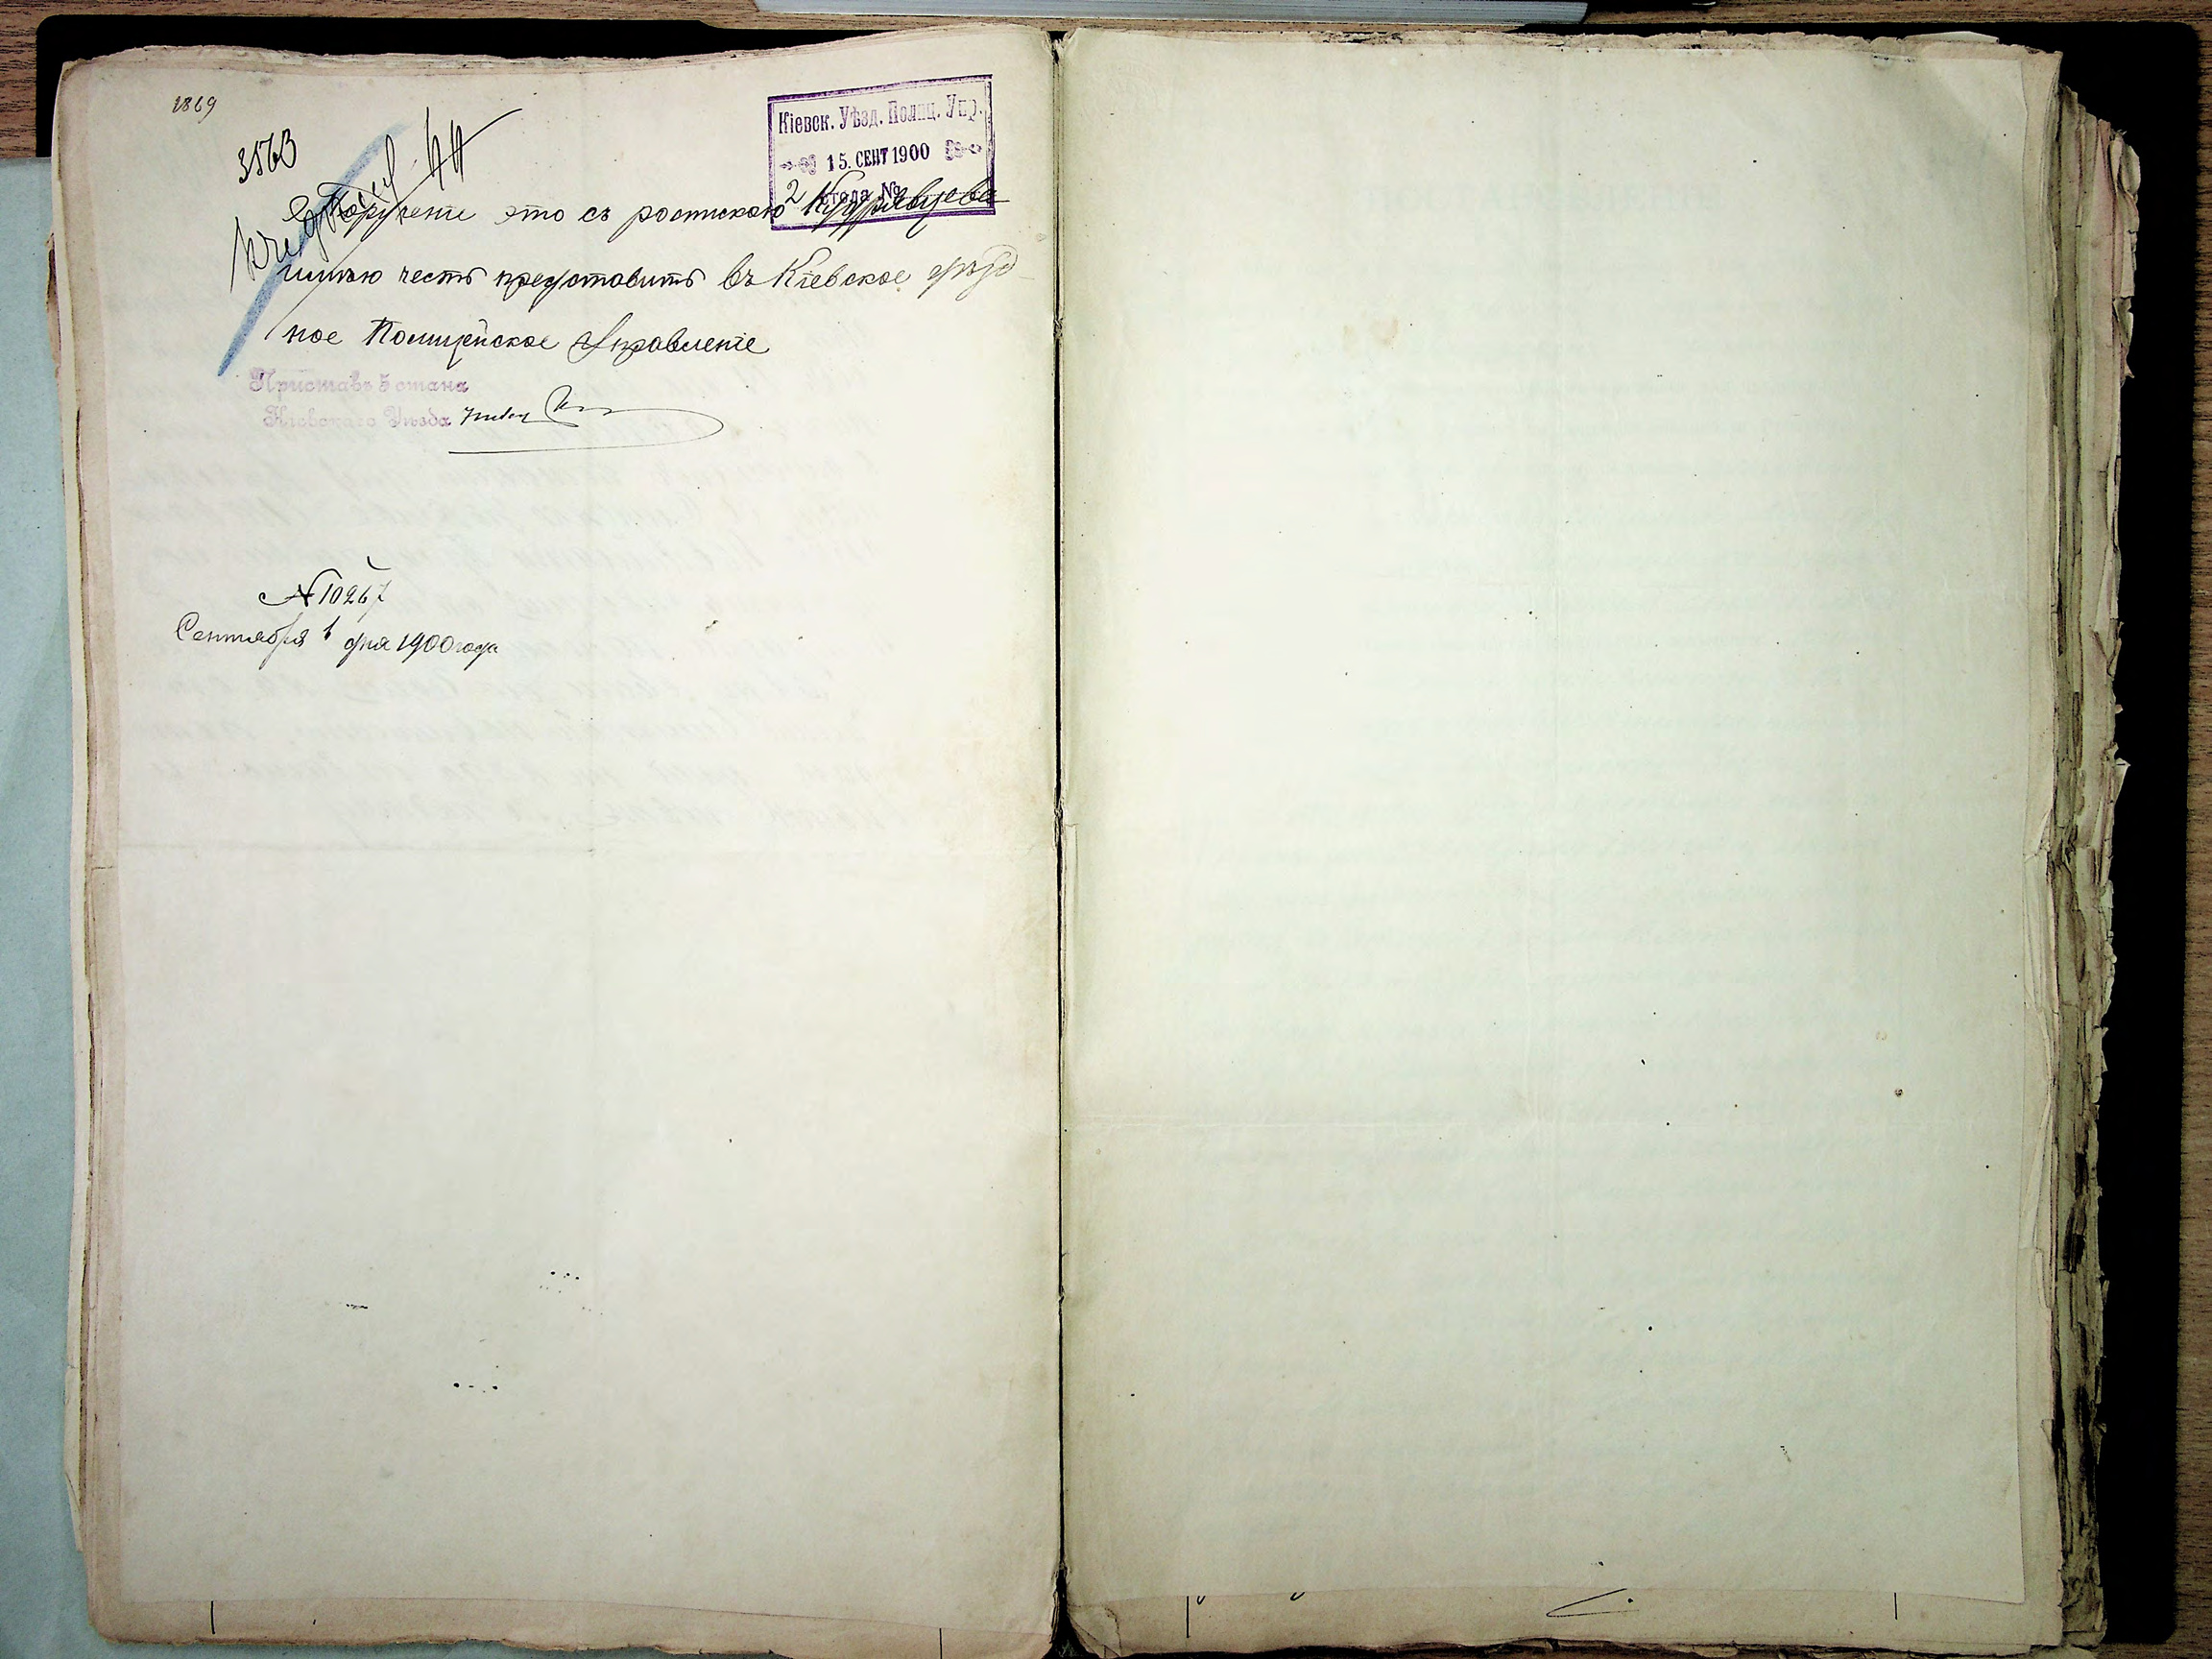 1869
3563
Кіевск. Уѣзд. Полиц. Упр.
15. СЕНТ 1900
2 стола №
Порученіе это съ роспискою Кудрявцева
имѣю честь представить въ Кіевское уѣзд-
ное Полицейское Управленіе
Приставъ 5 стана
Кіевскаго Уѣзда
№ 10267
Сентября 1 дня 1900 года